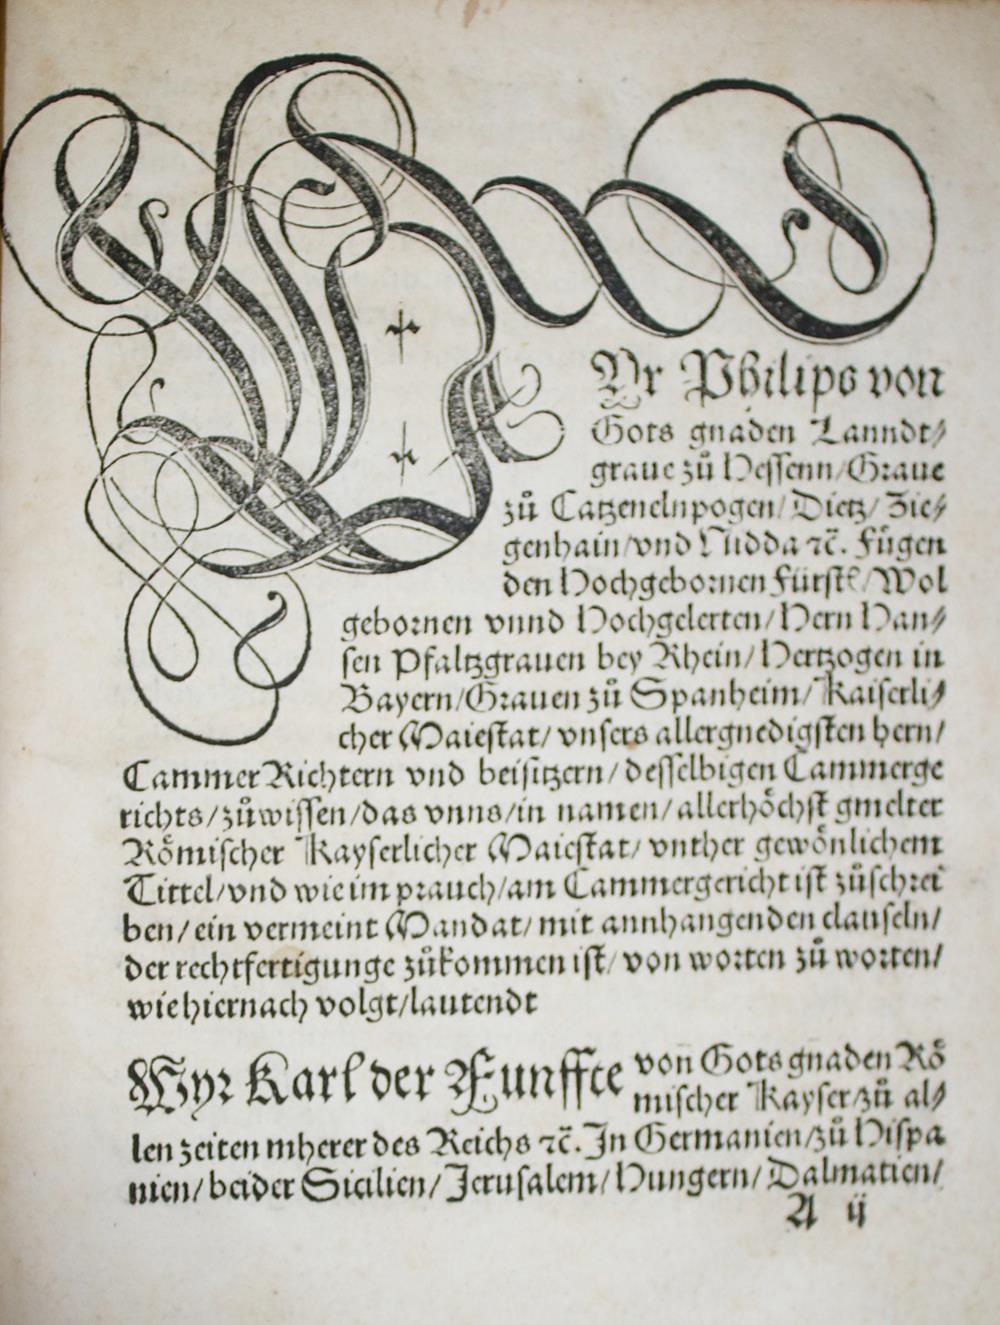 WYr Philips von
Gots gnaden Lanndt⸗
graue zů Hessenn/Graue
zů Catzenelnpogen/Dietz/Zie⸗
genhain/vnd Nidda ꝛc̃. Fůgen
den Hochgebornen Fürstẽ/Wol
gebornen vnnd Hochgelerten/Hern Han⸗
sen Pfaltzgrauen bey Rhein/Hertzogen in
Bayern/Grauen zů Spanheim/Kaiserli⸗
cher Maiestat/vnsers allergnedigsten hern/
CammerRichtern vnd beisitzern/desselbigen Cammerge
richts/zůwissen/das vnns/in namen/allerhöchst gmelter
Römischer Kayserlicher Maiestat/vnther gewönlichem
Tittel/vnd wie im prauch/am Cammergericht ist zůschrei
ben/ein vermeint Mandat/mit annhangenden clauseln/
der rechtfertigunge zůkommen ist/von worten zů worten/
wie hiernach volgt/lautendt
Wyr Karl der Funffte von Gots gnaden Rö
mischer Kayser/zů al⸗
len zeiten mherer des Reichs ꝛc̃. In Germanien/zů Hispa
nien/beider Sicilien/Jerusalem/Hungern/Dalmatien/
A ij